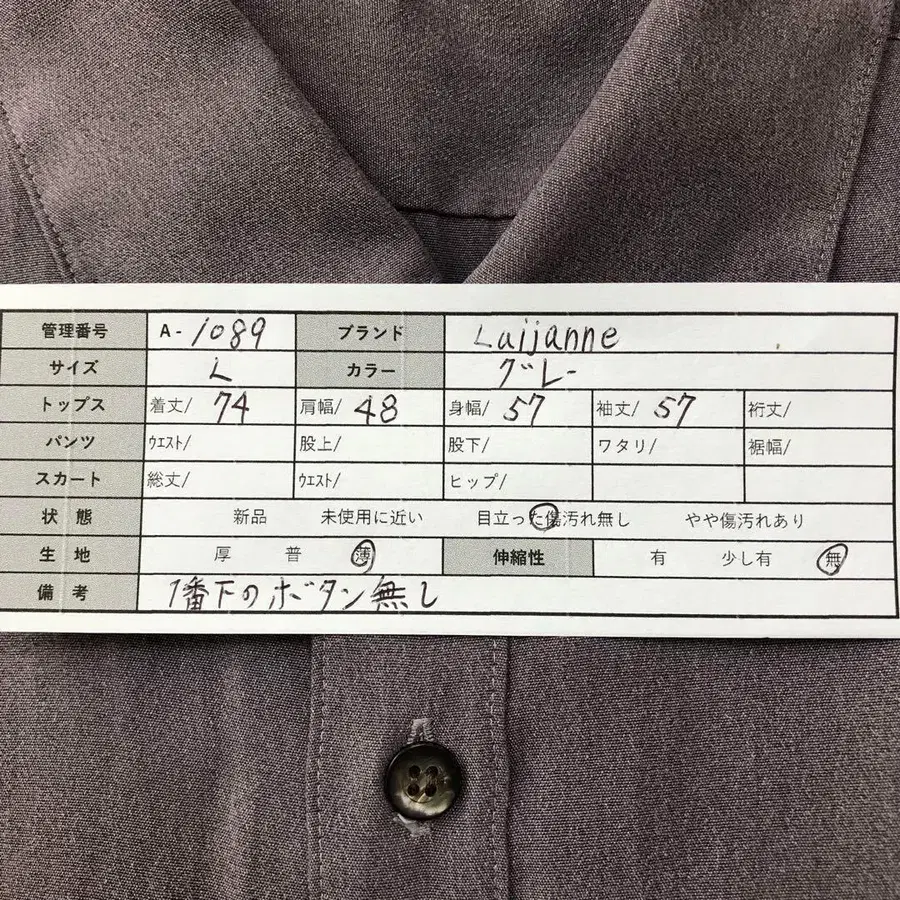 管理番号 A-1089 ブランド Laijanne
サイズ L カラー グレー
トップス 着丈/ 74 肩幅/ 48 身幅/ 57 袖丈/ 57 裄丈/
パンツ ウエスト/ 股上/ 股下/ ワタリ/ 裾幅/
スカート 総丈/ ウエスト/ ヒップ/
状態 新品 未使用に近い 目立った傷汚れ無し やや傷汚れあり
生地 厚 普 薄 伸縮性 有 少し有 無
備考 1番下のボタン無し